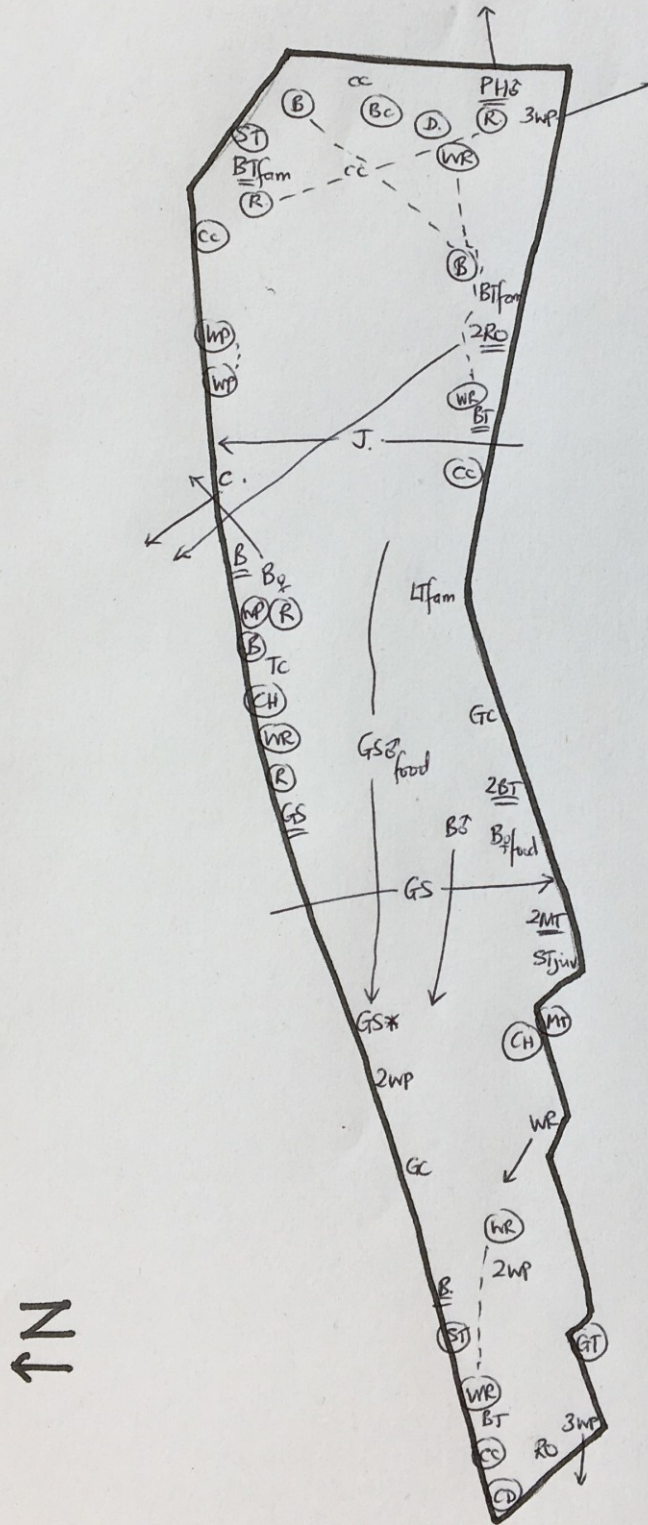 CC
PH♂
B
BC
D.
R.
3WP
ST
WR
BTfam
CC
R
CC
B
BTfam
WP
2RO
WP
WR
BT
J.
CC
C.
B
B♀
LTfam
WP
R
B
TC
CH
GC
WR
GS♂food
R
2BT
GS
B♂
B♀food
GS
2MT
STjuv
GS*
MT
CH
2WP
WR
GC
WR
2WP
B.
ST
GT
WR
BT
3WP
CC
RO
CD
N